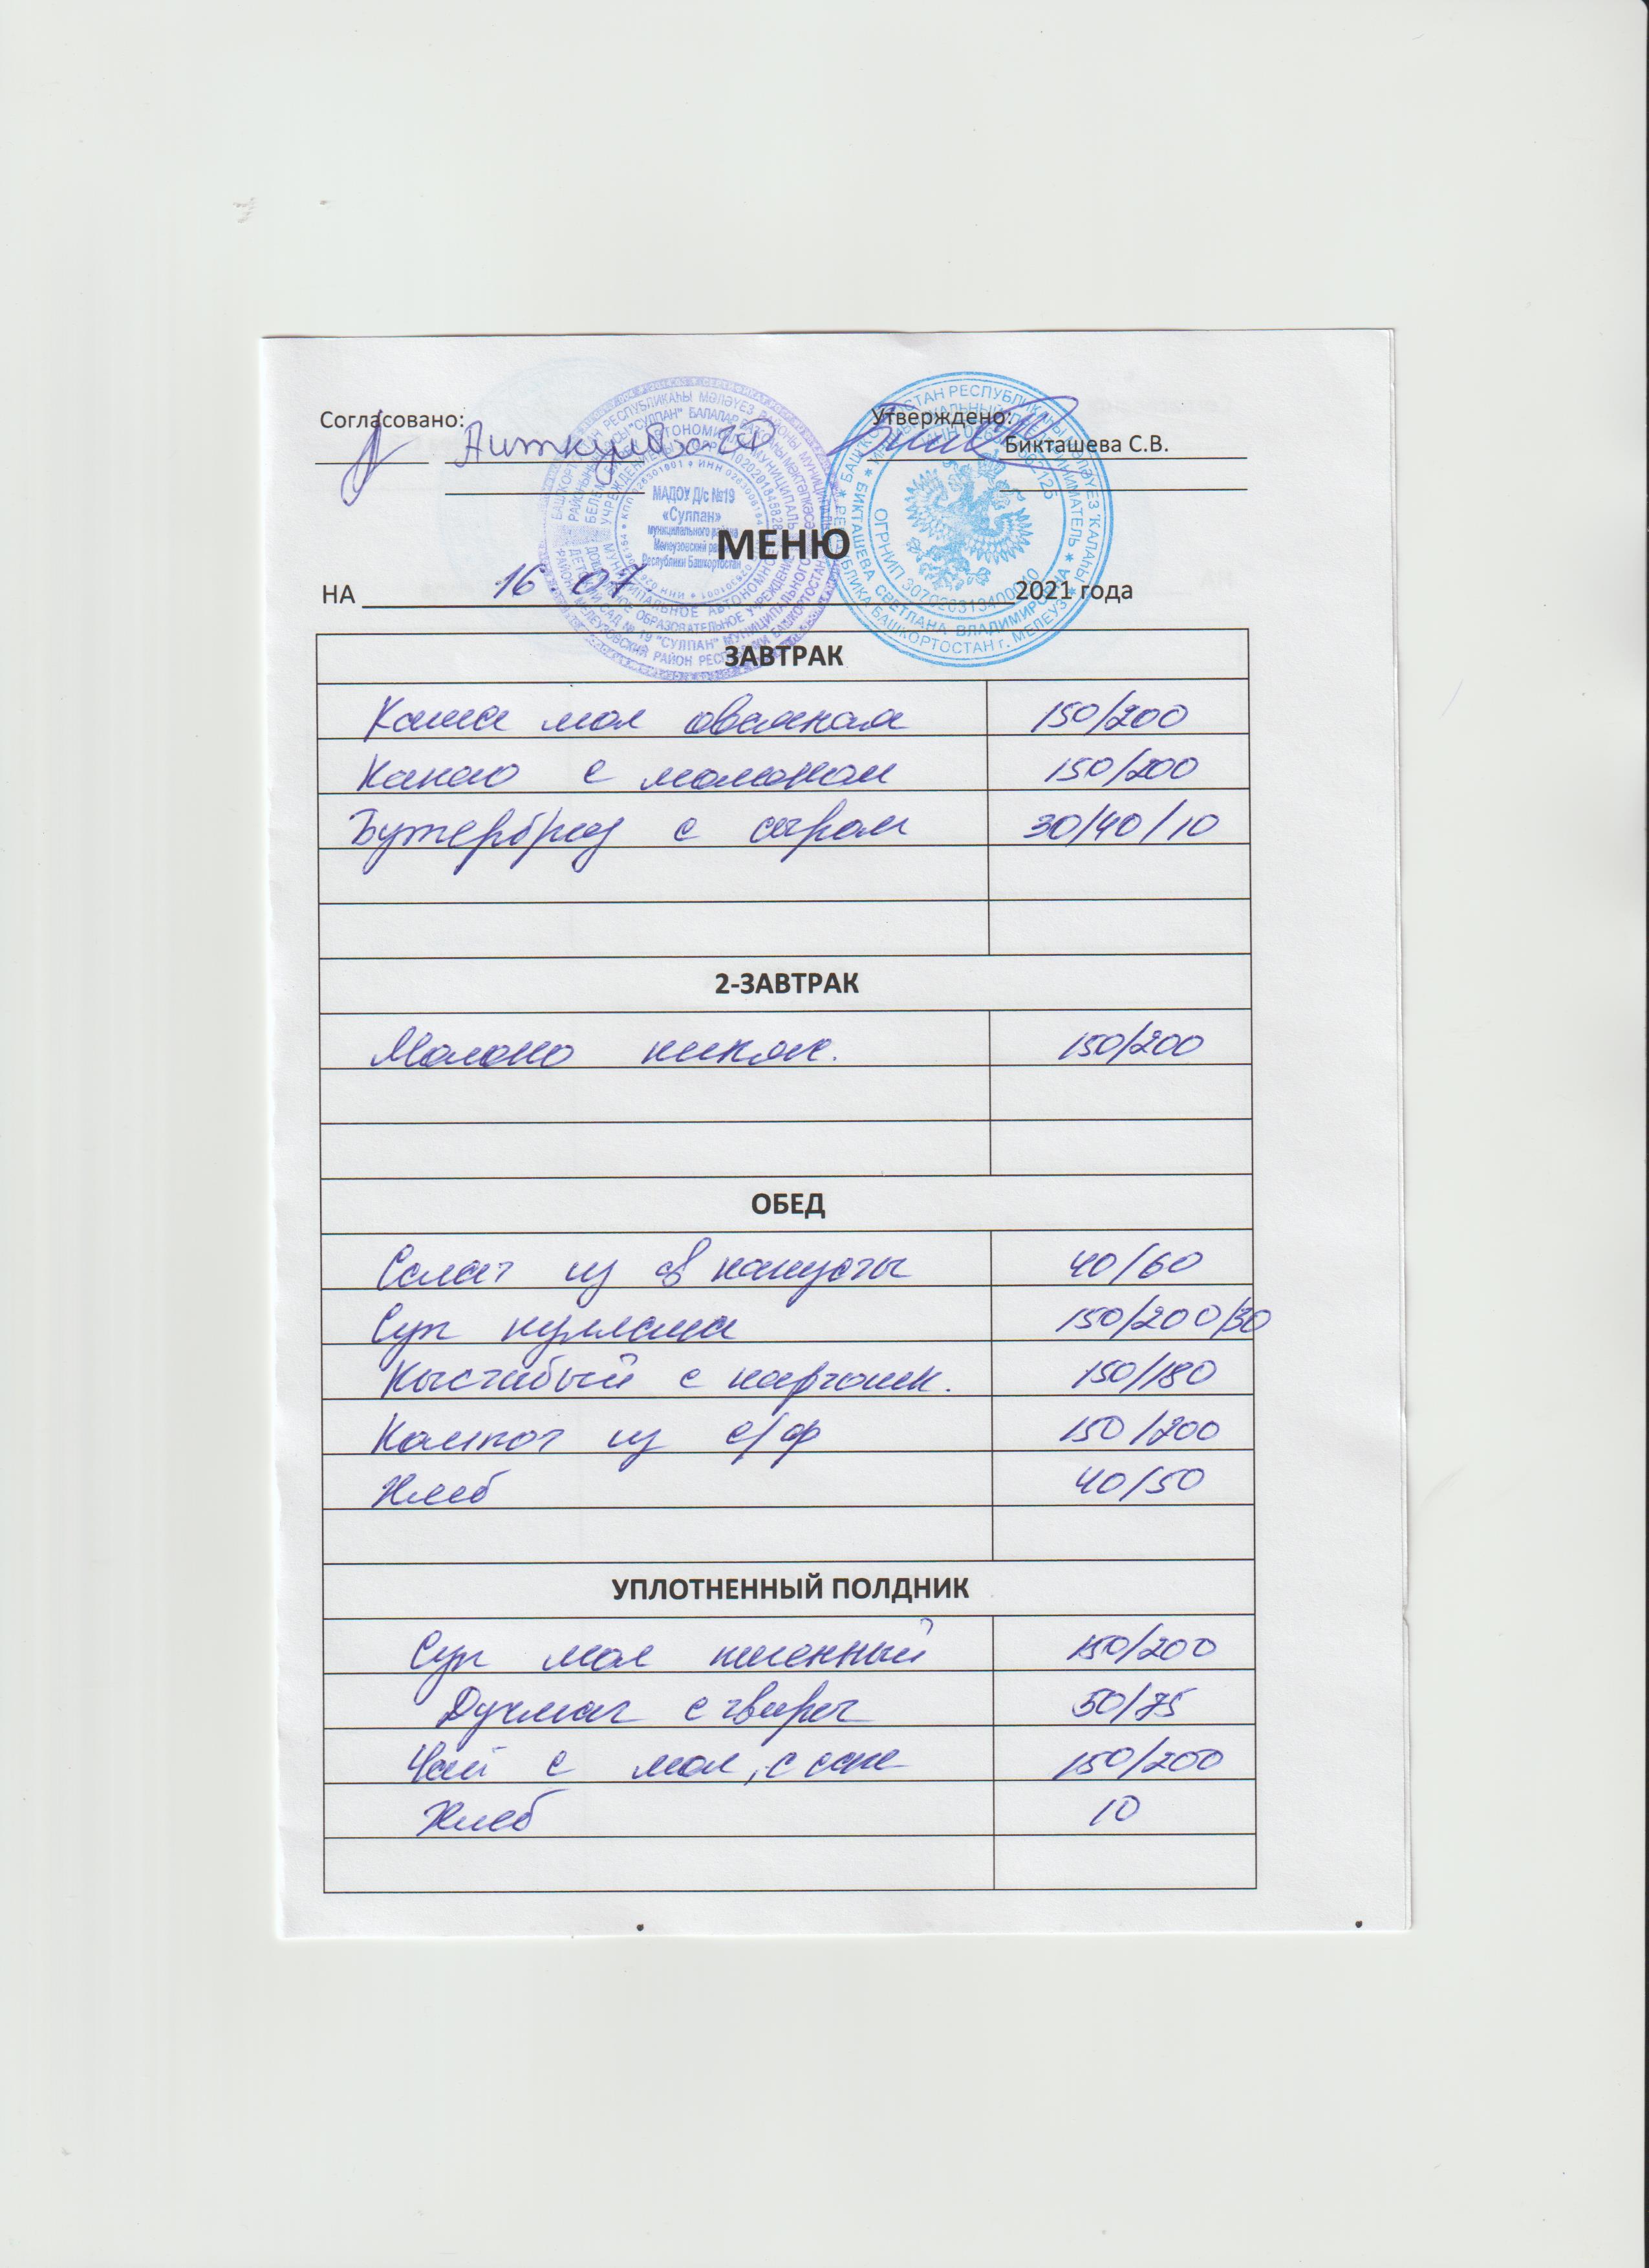 Согласовано: Утверждено:
Бикташева С.В.
МАДОУ Д/с №19
«Сулпан»
муниципального района
Мелеузовский район
Республики Башкортостан
МЕНЮ
НА 16 07 2021 года
ЗАВТРАК
Каша мол овсяная 150/200
Какао с молоком 150/200
Бутерброд с сыром 30/40/10
2-ЗАВТРАК
Молоко кипяч. 150/200
ОБЕД
Салат из св капусты 40/60
Суп куллама 150/200/30
Кыстыбый с картошк. 150/180
Компот из с/ф 150/200
Хлеб 40/50
УПЛОТНЕННЫЙ ПОЛДНИК
Суп мол пшенный 150/200
Дучмак с творог 50/75
Чай с мол, с сах 150/200
Хлеб 10